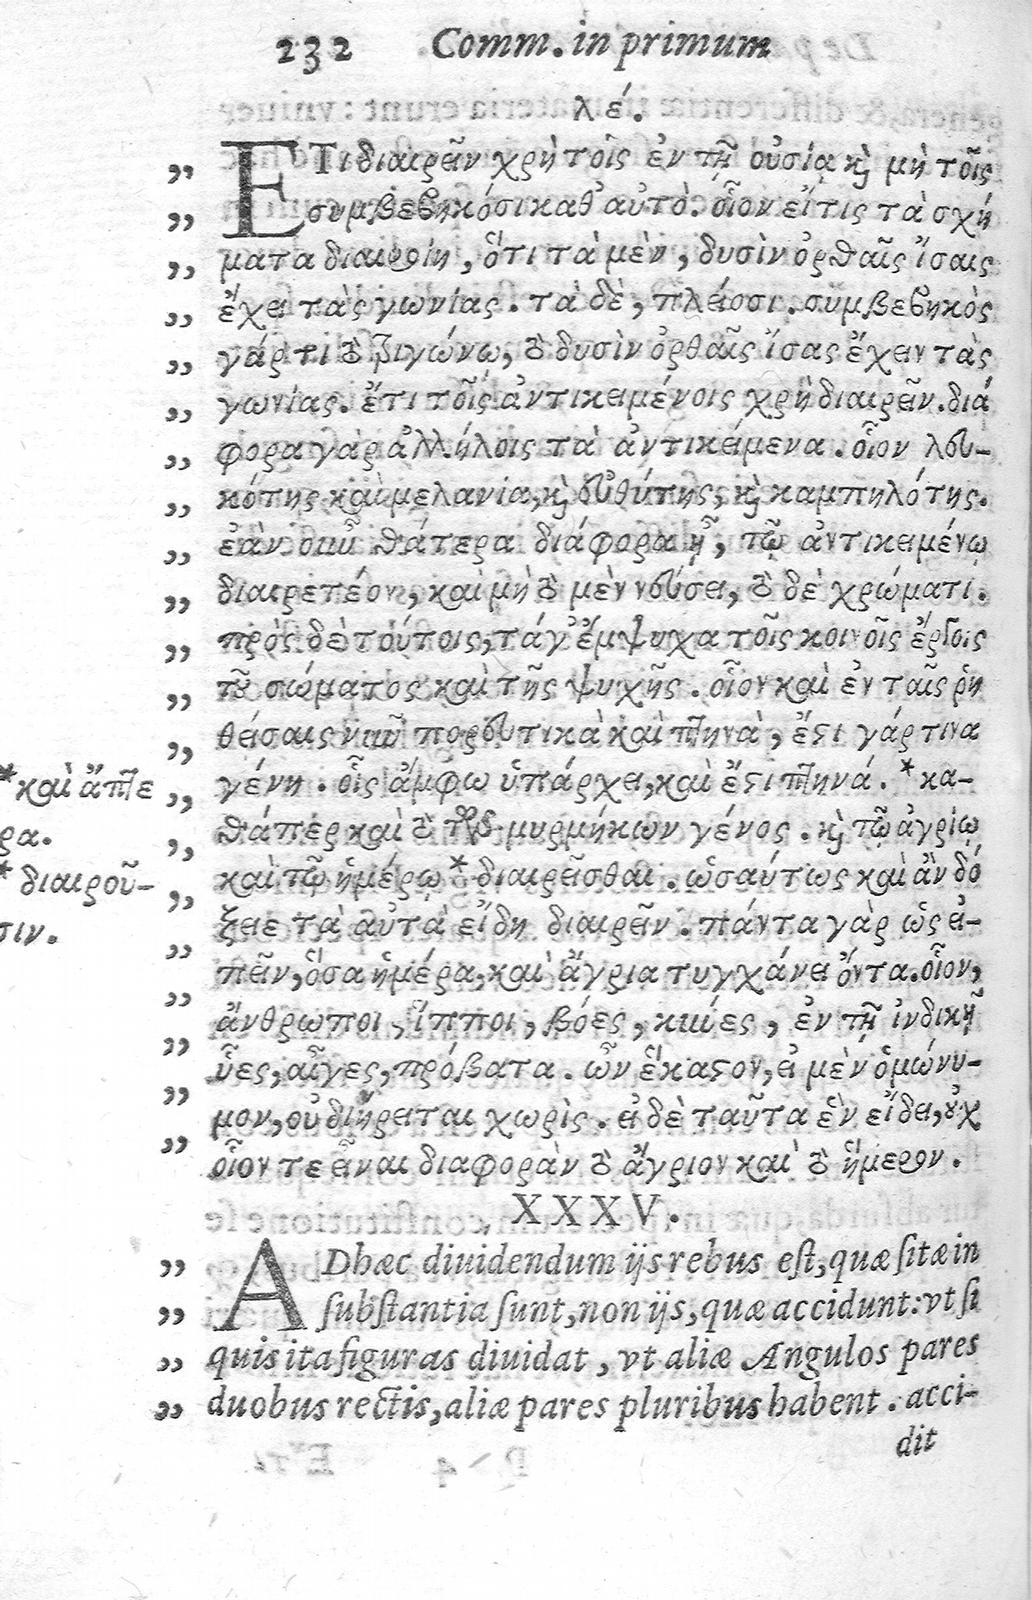 232 Comm. in primum
λέ.
ΕΤι διαιρεῖν χρὴ τοῖς ἐν τῇ οὐσίᾳ καὶ μὴ τοῖς
συμβεβηκόσι καθ᾽ αὑτὸ. οἷον εἴ τις τὰ σχή
ματα διαιροίη, ὅτι τὰ μὲν, δυσὶν ὀρθαῖς ἴσαις
ἔχει τὰς γωνίας. τὰ δὲ, πλείοσι. συμβεβηκὸς
γάρ τι τὸ τριγώνῳ, τὸ δυσὶν ὀρθαῖς ἴσας ἔχειν τὰς
γωνίας. ἔτι τοῖς ἀντικειμένοις χρὴ διαιρεῖν. διά
φορα γὰρ ἀλλήλοις τὰ ἀντικείμενα. οἷον λευ-
κότης καὶ μελανία, καὶ εὐθύτης, καὶ καμπηλότης.
ἐὰν οὖν θάτερα διάφορα ᾖ, τῷ ἀντικειμένῳ
διαιρετέον, καὶ μὴ τὸ μὲν νεύσει, τὸ δὲ χρώματι.
πρὸς δὲ τούτοις, τά γ᾽ ἔμψυχα τοῖς κοινοῖς ἔργοις
τοῦ σώματος καὶ τῆς ψυχῆς. οἷον καὶ ἐν ταῖς ῥη
θείσαις νῦν πορευτικὰ καὶ πτηνὰ, ἔστι γάρ τινα
γένη. οἷς ἄμφω ὑπάρχει, καὶ ἔστι πτηνά. * κα-
*καὶ ἄπτε
θάπερ καὶ τὸ τῶν μυρμήκων γένος. καὶ τῷ ἀγρίῳ
ρα.
καὶ τῷ ἡμέρῳ * διαιρεῖσθαι. ὡσαύτως καὶ ἂν δό
* διαιροῦ-
ξειε τὰ αὐτὰ εἴδη διαιρεῖν. πάντα γὰρ ὡς εἰ-
σιν.
πεῖν, ὅσα ἡμέρα, καὶ ἄγρια τυγχάνει ὄντα. οἷον,
ἄνθρωποι, ἵπποι, βόες, κύνες, ἐν τῇ ἰνδικῇ
ὗες, αἶγες, πρόβατα. ὧν ἕκαστον, εἰ μὲν ὁμώνυ-
μον, οὐ διῄρεται χωρὶς. εἰ δὲ ταῦτα ἓν εἴδει, οὐχ
οἷον τε εἶναι διαφορὰν τὸ ἄγριον καὶ τὸ ἥμερον.
XXXV.
ADhæc diuidendum ijs rebus est, quæ sitæ in
substantia sunt, non ijs, quæ accidunt: vt si
quis ita figuras diuidat, vt aliæ Angulos pares
duobus rectis, aliæ pares pluribus habent. acci-
dit